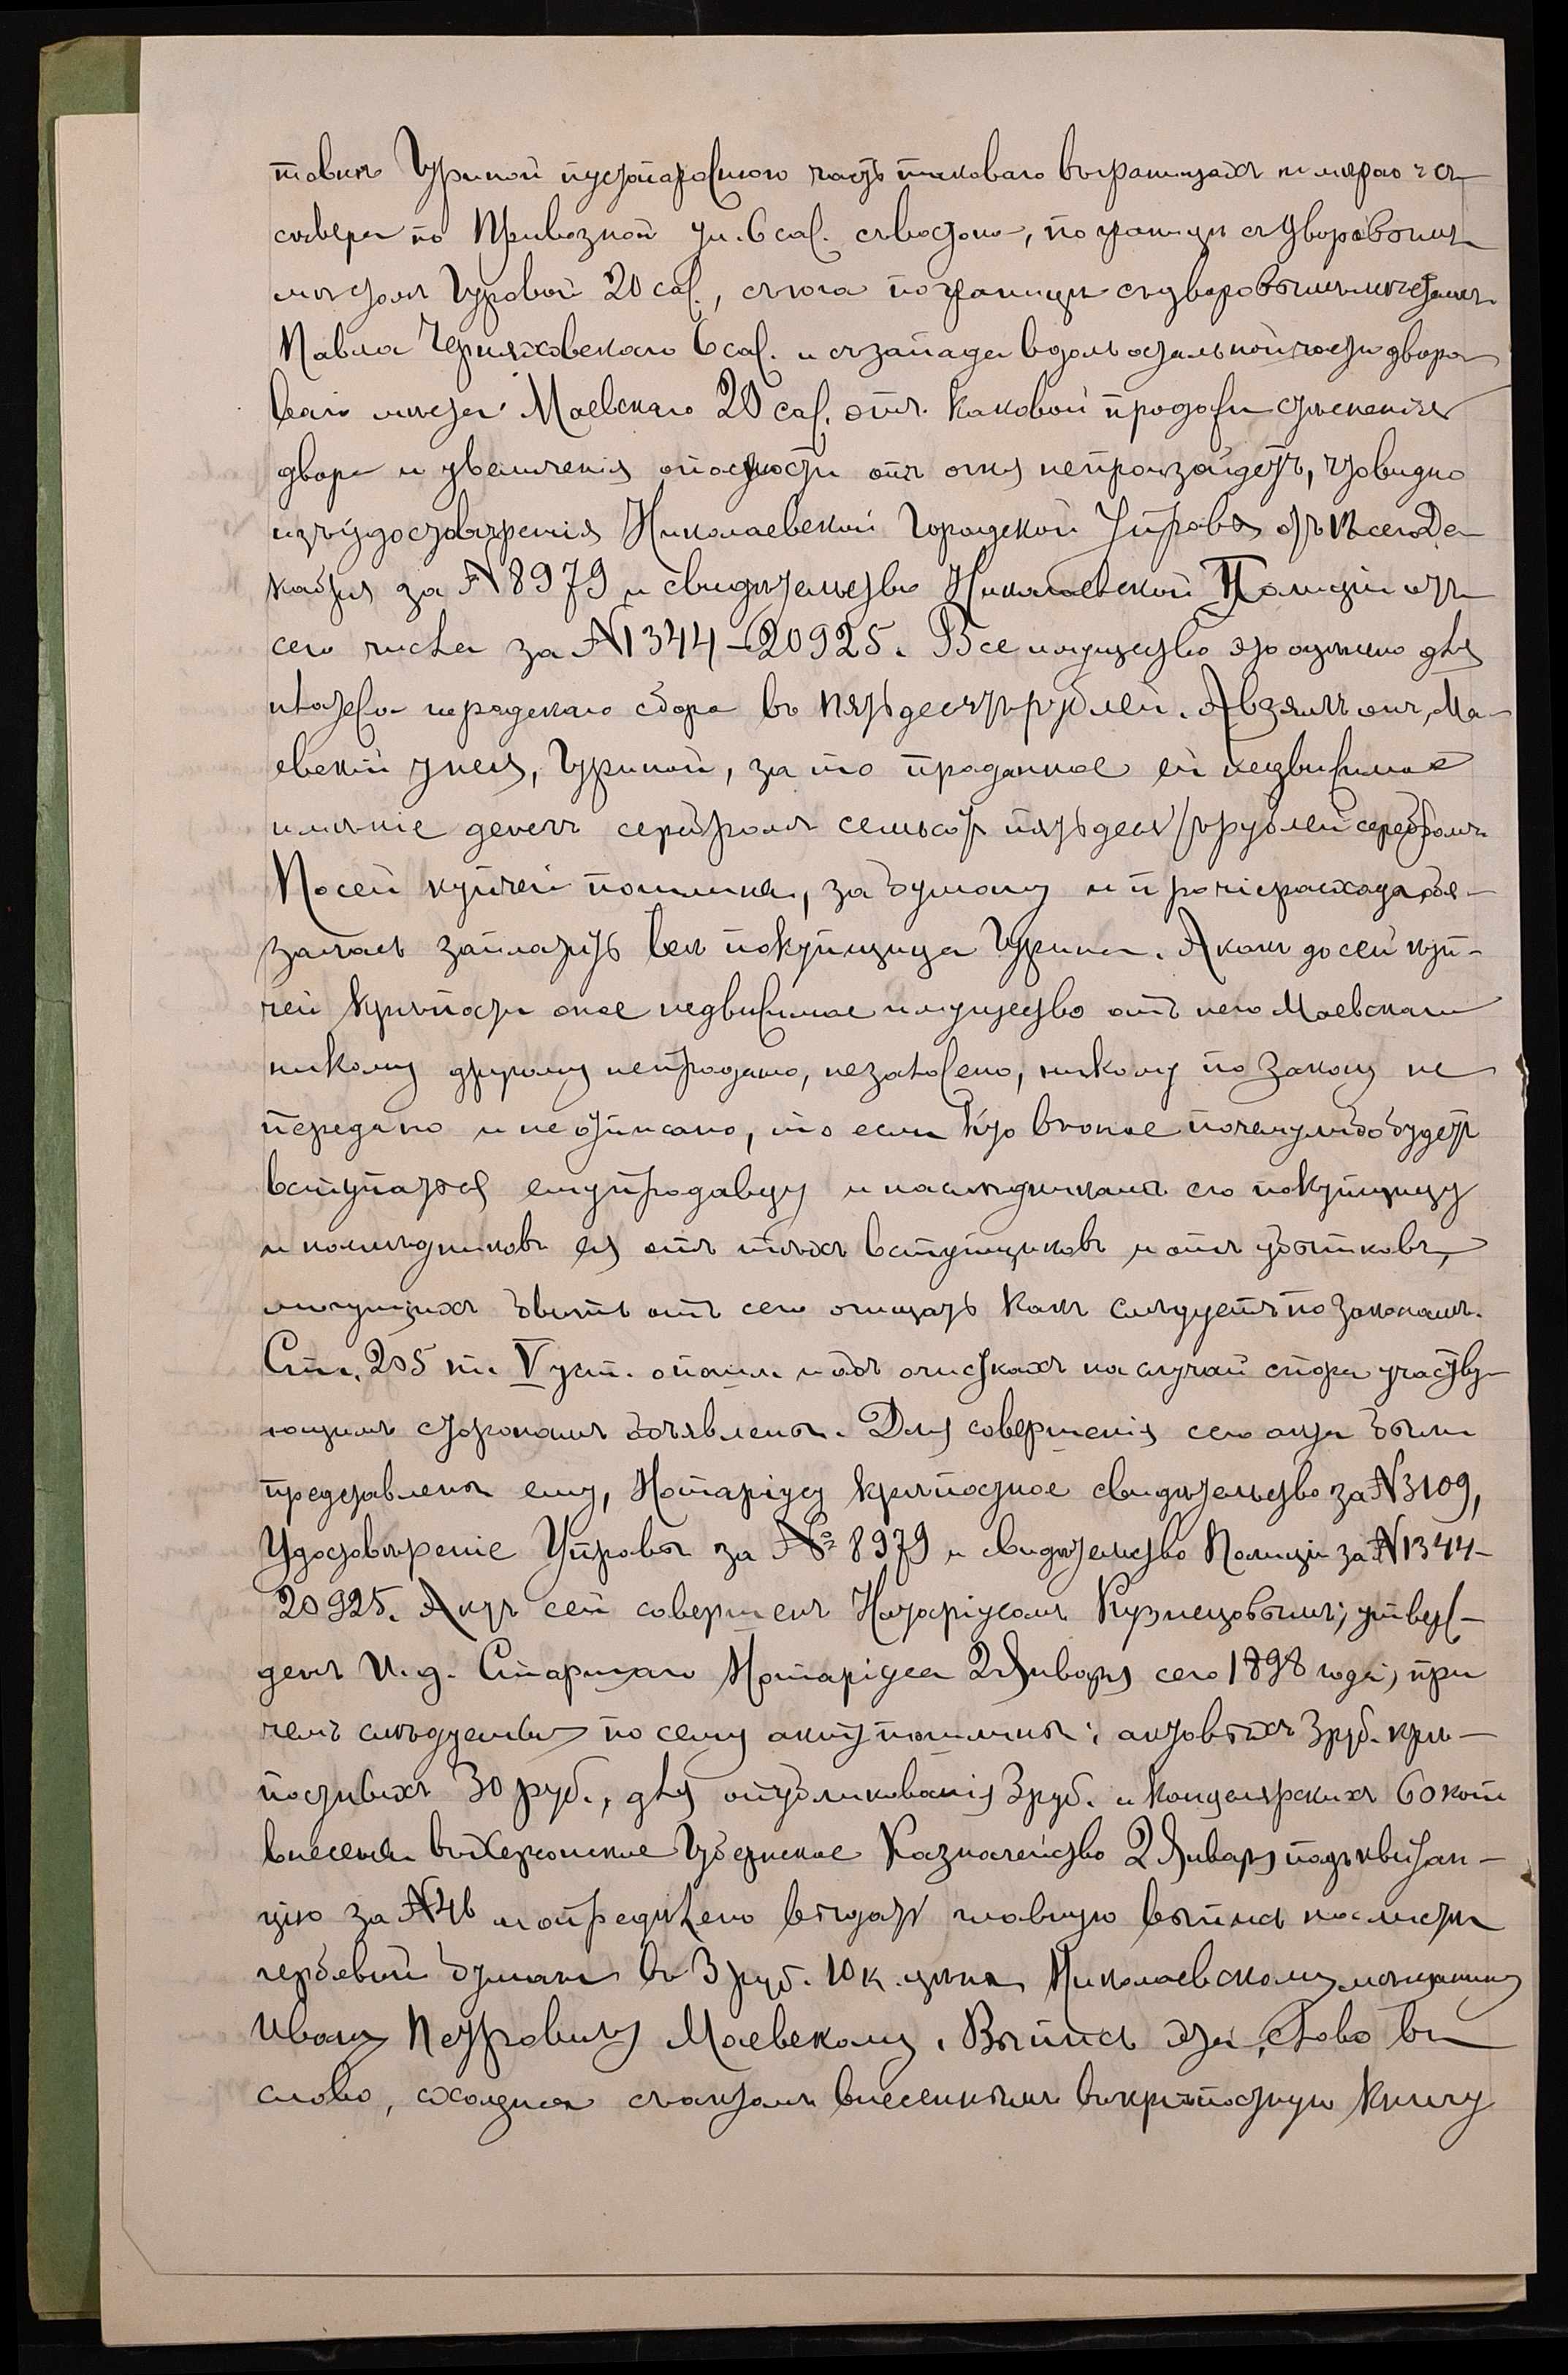 товилъ Гуриной пустопорожнюю часть таковаго въ границахъ и мѣрою: съ
сѣвера по Привозной ул. 6 саж. съ востока, по границѣ съ дворовымъ
мѣстомъ Гуровой 20 саж., съ юга по границѣ съ дворовымъ мѣстомъ
Павла Черняховскаго 6 саж. и съ запада вдоль остальной части дворо-
ваго мѣста Маевскаго 20 саж. отъ каковой продажи стѣсненія
двора и увеличенія опасности отъ огня не произойдетъ, что видно
изъ удостовѣренія Николаевской Городской Управы отъ 12 сего Де-
кабря за № 8979 и свидѣтельства Николаевской Полиціи отъ
сего числа за № 1344-20925. Все имущество это оцѣнено для
платежа городскаго сбора въ пятьдесятъ рублей. А взялъ онъ, Ма-
евскій у нея, Гуриной, за то проданное ей недвижимое
имѣніе денегъ серебромъ семьсотъ пятьдесятъ рублей серебромъ
По сей купчей пошлины, за бумагу и прочіе расхода обя-
залась заплатить всѣ покупщица Гурина. А какъ до сей куп-
чей крѣпости оное недвижимое имущество отъ него Маевскаго
никому другому не продано, не заложено, никому по закону не
передано и не отписано, то если кто въ оное почему либо будетъ
вступаться ему продавцу и наслѣдникамъ его покупщицу
и наслѣдниковъ ея отъ тѣхъ вступщиковъ и отъ убытковъ,
могущихъ быть отъ сего очищать какъ слѣдуетъ по законамъ.
Ст. 205 т. V уст. о пошл. и объ очисткахъ на случай спора участву-
ющимъ сторонамъ объявлены. Для совершенія сего акта были
представлены ему, Нотаріусу крѣпостное свидѣтельство за № 3109,
Удостовѣреніе Управы за № 8979 и свидѣтельство Полиціи за № 1344-
20925. Актъ сей совершенъ Нотаріусомъ Кузнецовымъ; утверж-
денъ И. д. Старшаго Нотаріуса 2 Января сего 1898 года; при
чемъ слѣдуемыя по сему акту пошлины: актовыхъ 3 руб. крѣ-
постныхъ 30 руб., для опубликованія 3 руб. и канцелярскихъ 60 коп
внесены въ Херсонское Губернское Казначейство 2 Января подъ квитан-
цію за № 46 и опредѣлено выдать главную выпись на листѣ
гербовой бумаги въ 3 руб. 10 к. цѣны Николаевскому мѣщанину
Ивану Петровичу Маевскому. Выпись эта, слово въ
слово, сходна съ актомъ внесеннымъ въ крѣпостную книгу